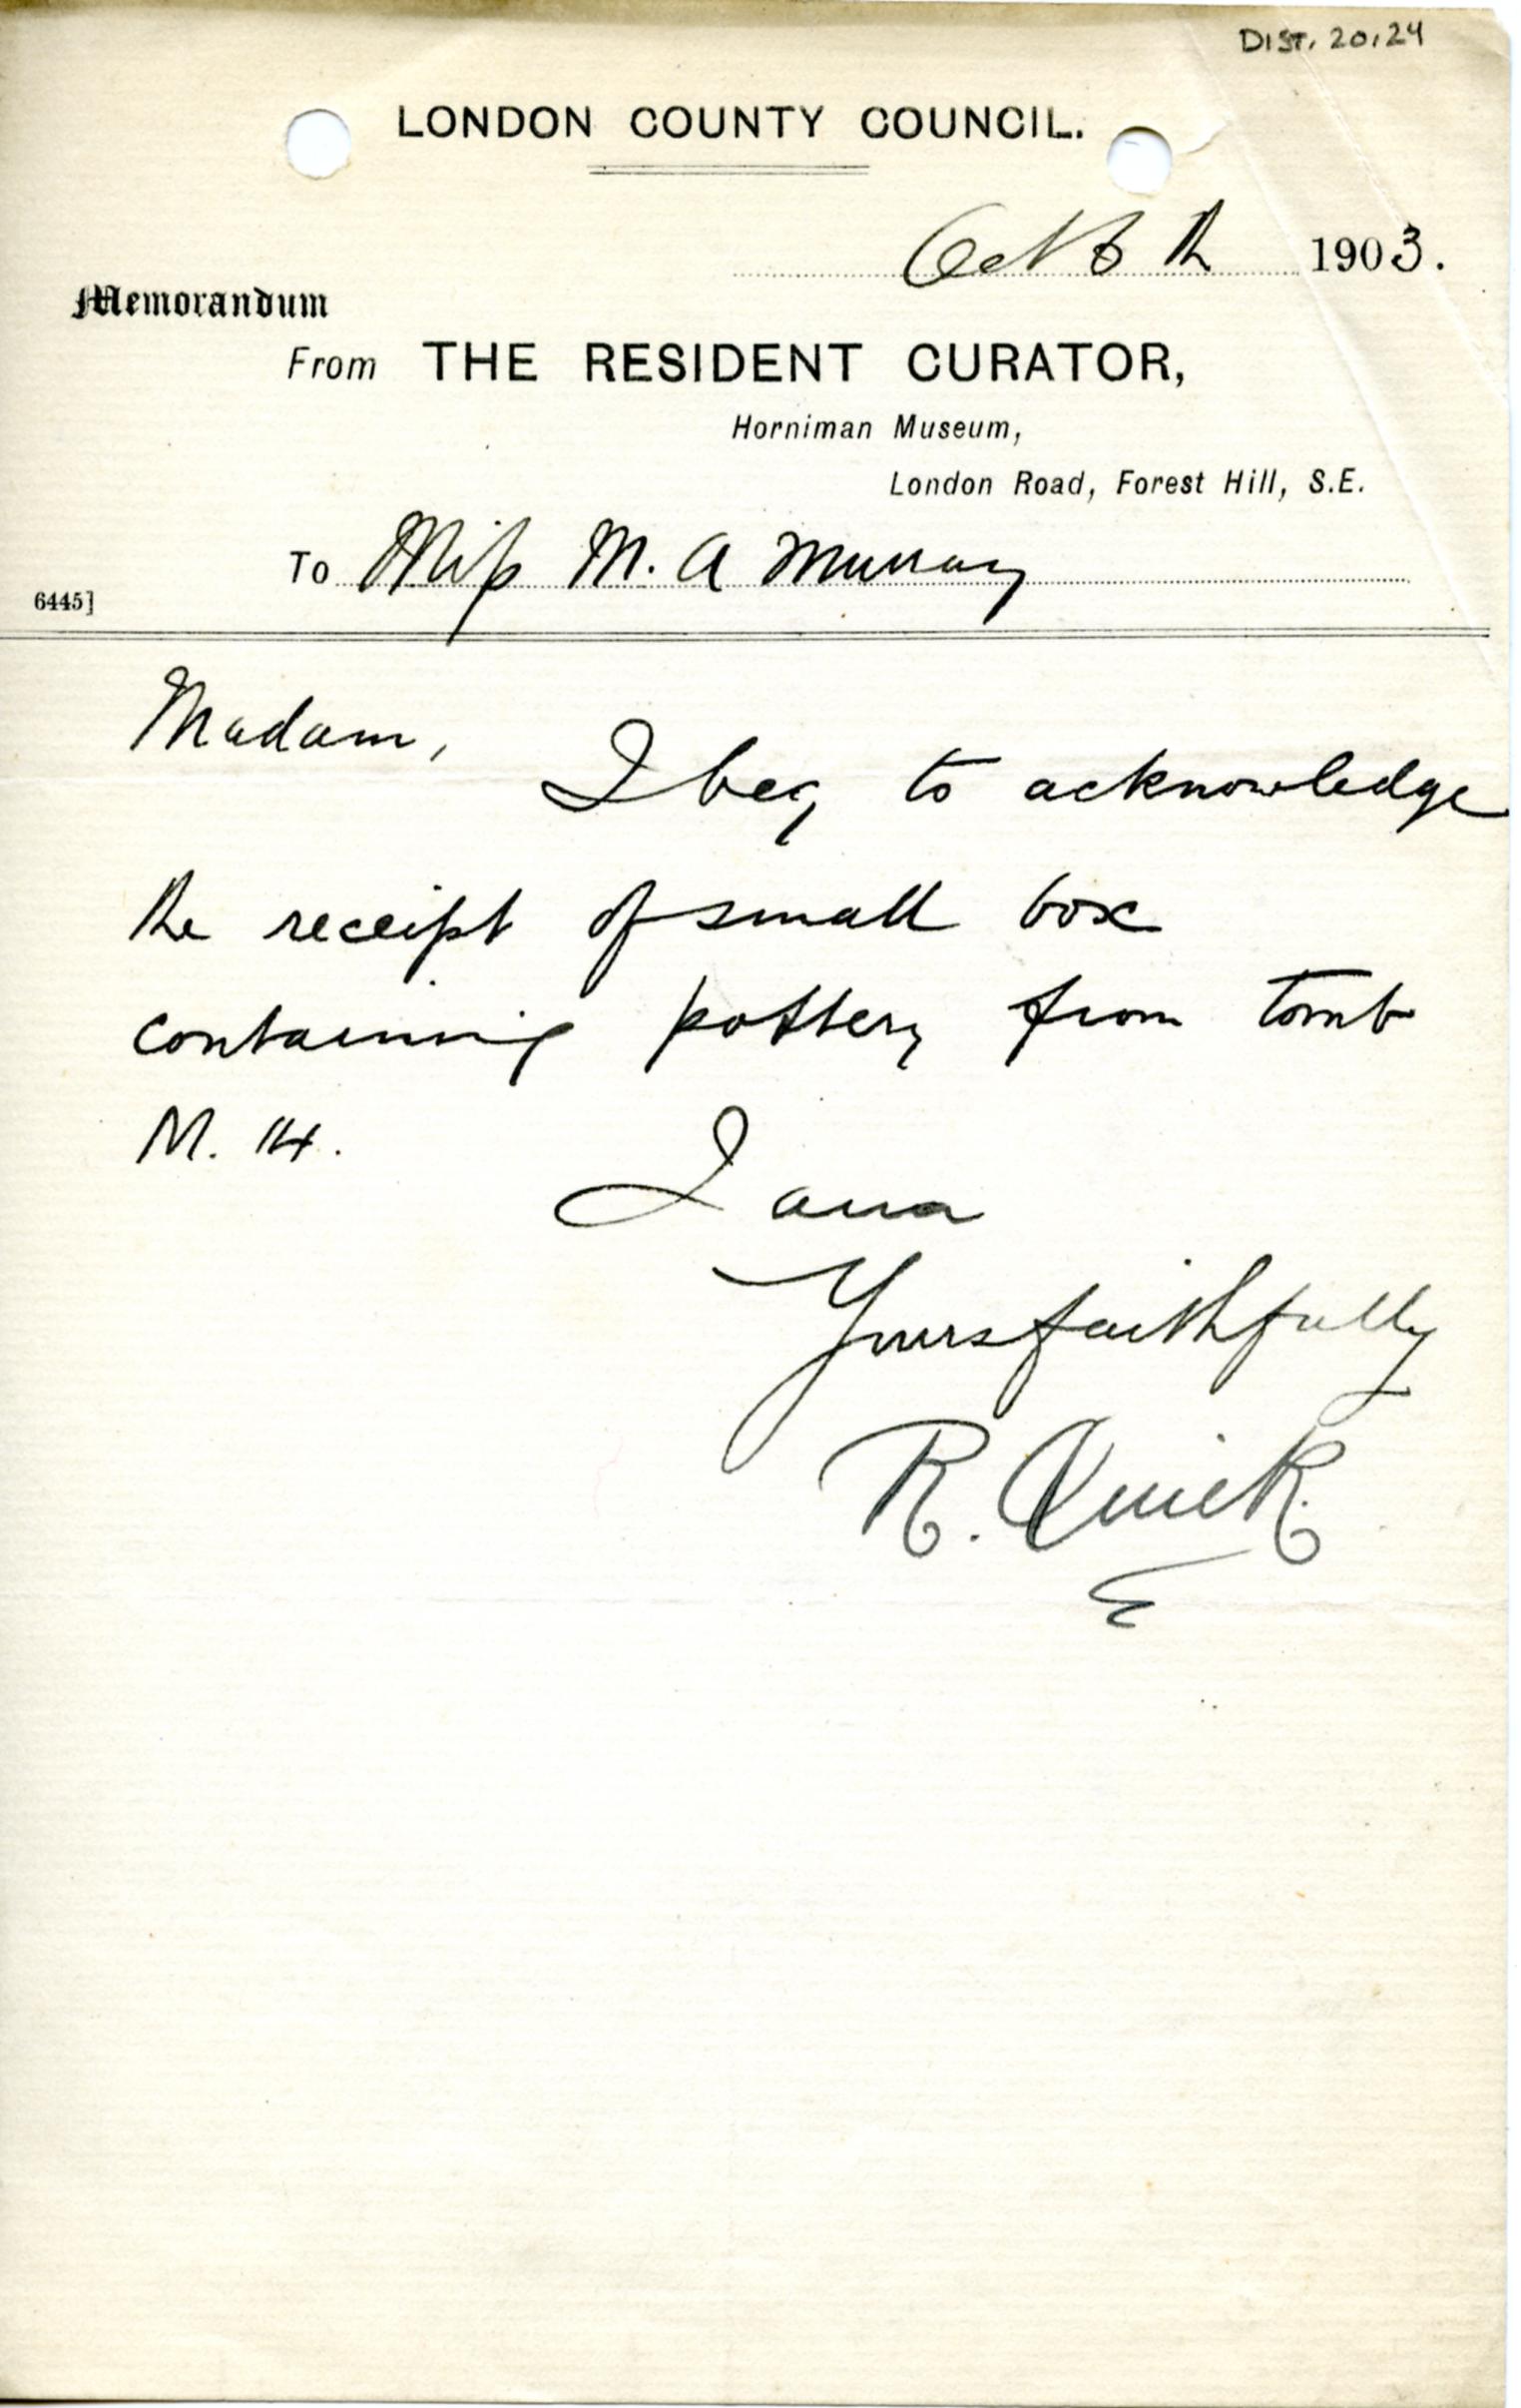 DIST. 20.24
LONDON COUNTY COUNCIL.
Oct 6th 1903.
Memorandum
From THE RESIDENT CURATOR,
Horniman Museum,
London Road, Forest Hill, S.E.
To Miss M. A Murray
6445]
Madam,
I beg to acknowledge
the receipt of small box
containing pottery from tomb
M. 14.
I am
Yours faithfully
R. Quick